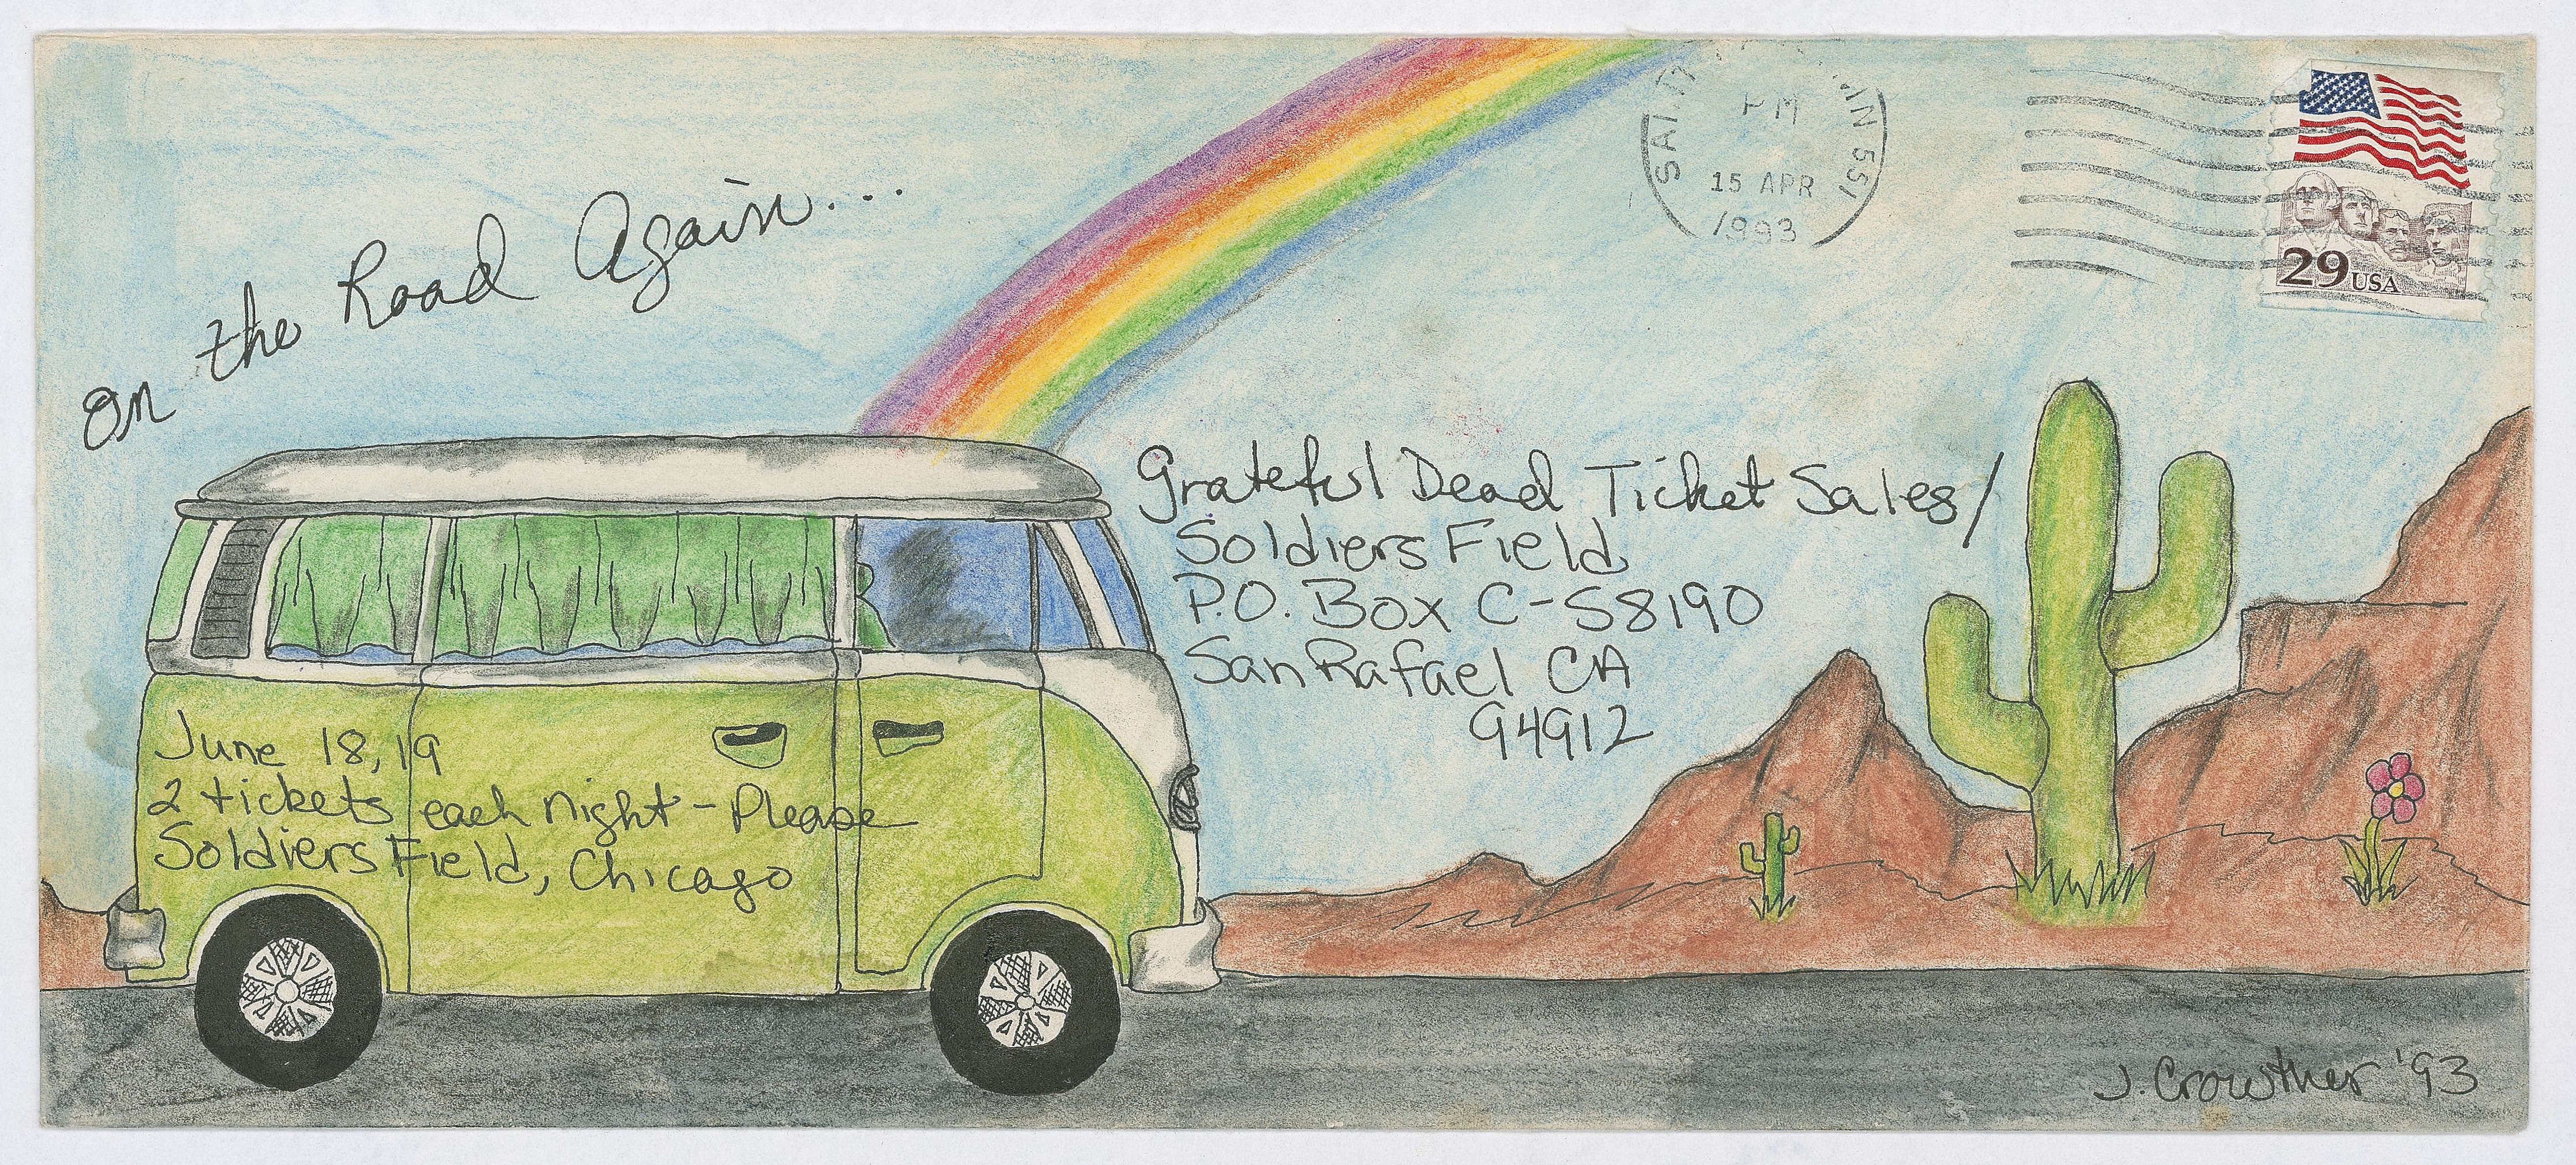 on the Road Again...
PM
15 APR
1993
29 USA
Grateful Dead Ticket Sales/
Soldiers Field
P.O. Box C-S8190
San Rafael CA
94912
June 18, 19
2 tickets each night - Please
Soldiers Field, Chicago
J. Crowther '93